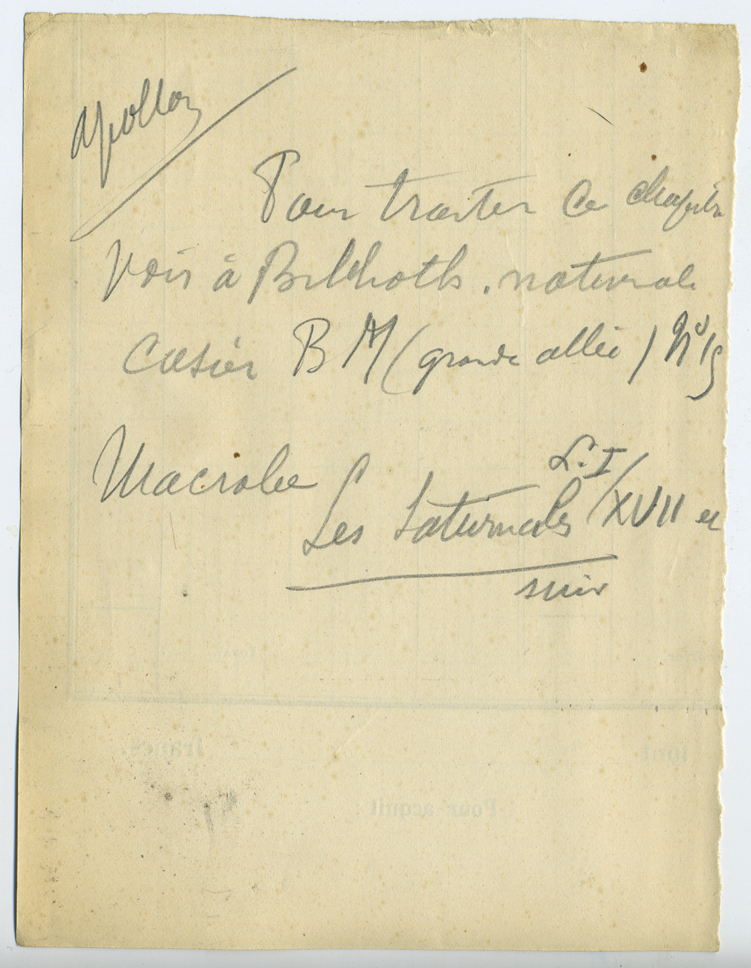 Apollon
Pour traiter ce chapitre
voir à Biblioth. nationale
casier BM (grande allée) N° 15
Macrobe
L. I
Les Saturnales / XVII et
suiv
francs.
font
Pour acquit :